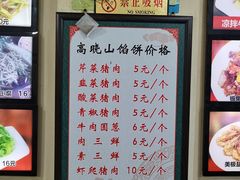 禁止吸烟
NO SMOKING
高晓山馅饼价格
芹菜猪肉 5元/个
韭菜猪肉 5元/个
酸菜猪肉 5元/个
青椒猪肉 5元/个
牛肉圆葱 6元/个
肉三鲜 6元/个
素三鲜 5元/个
虾爬猪肉 10元/个
16元
凉拌牛